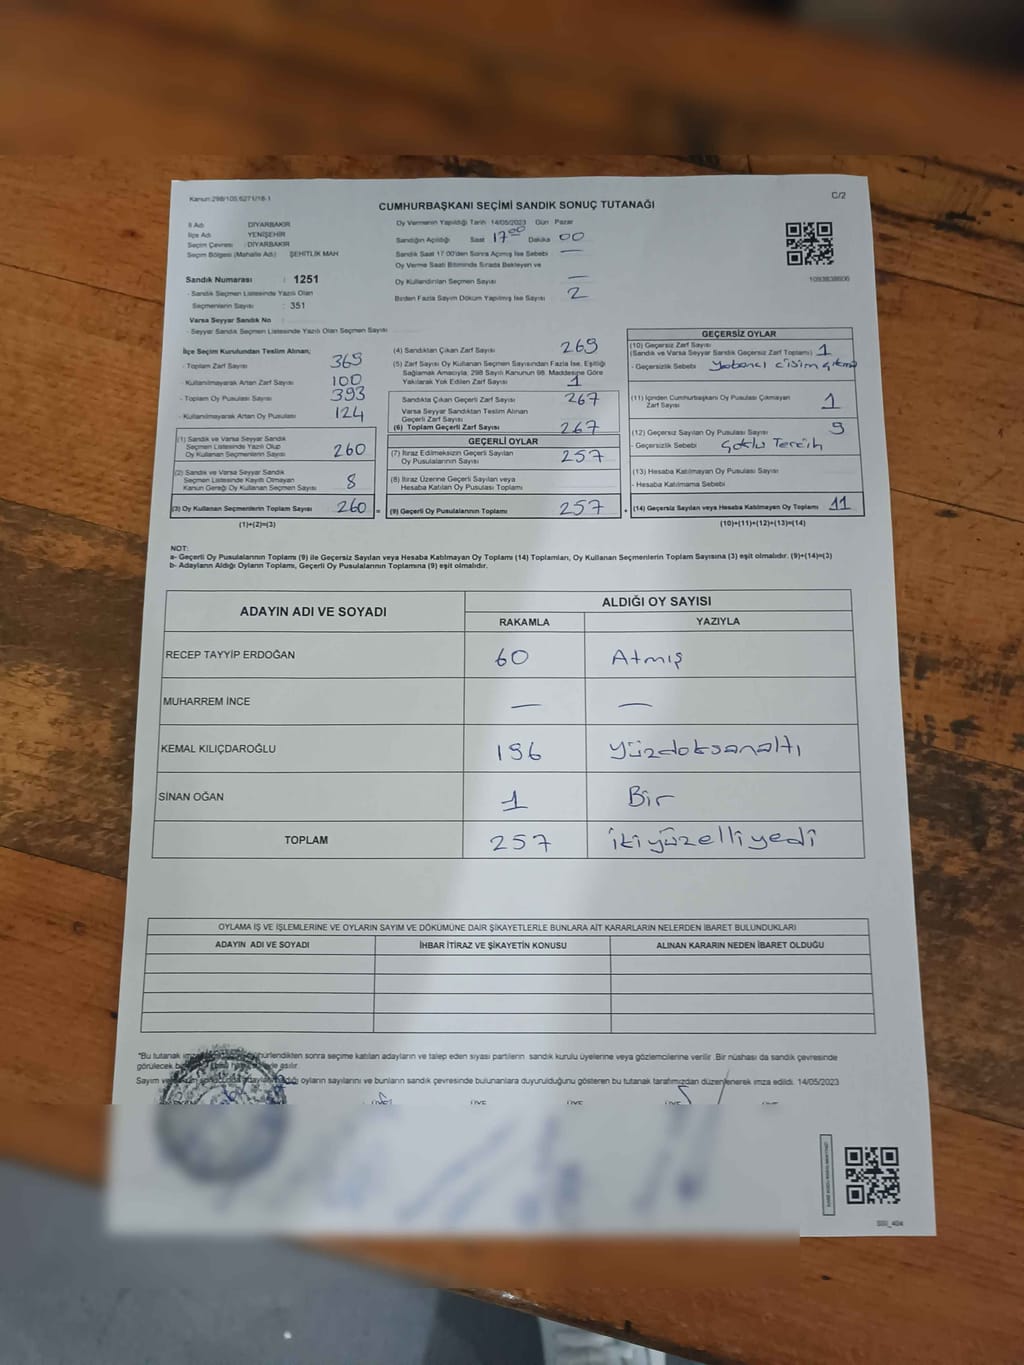 Kanun:298/105;6271/18-1
C/2
CUMHURBAŞKANI SEÇİMİ SANDIK SONUÇ TUTANAĞI
İl Adı : DİYARBAKIR
İlçe Adı : YENİŞEHİR
Seçim Çevresi : DİYARBAKIR
Seçim Bölgesi (Mahalle Adı) ŞEHİTLİK MAH
Sandık Numarası : 1251
- Sandık Seçmen Listesinde Yazılı Olan
Seçmenlerin Sayısı : 351
Varsa Seyyar Sandık No :
- Seyyar Sandık Seçmen Listesinde Yazılı Olan Seçmen Sayısı
Oy Vermenin Yapıldığı Tarih 14/05/2023 Gün Pazar
Sandığın Açıldığı Saat 17⁰⁰ Dakika 00
Sandık Saat 17:00'den Sonra Açılmış İse Sebebi —
Oy Verme Saati Bitiminde Sırada Bekleyen ve
Oy Kullandırılan Seçmen Sayısı —
Birden Fazla Sayım Döküm Yapılmış İse Sayısı 2
1093838606
İlçe Seçim Kurulundan Teslim Alınan;
- Toplam Zarf Sayısı 369
- Kullanılmayarak Artan Zarf Sayısı 100
- Toplam Oy Pusulası Sayısı 393
- Kullanılmayarak Artan Oy Pusulası 124
(1) Sandık ve Varsa Seyyar Sandık
Seçmen Listesinde Yazılı Olup
Oy Kullanan Seçmenlerin Sayısı 260
(2) Sandık ve Varsa Seyyar Sandık
Seçmen Listesinde Kayıtlı Olmayan
Kanun Gereği Oy Kullanan Seçmen Sayısı 8
(3) Oy Kullanan Seçmenlerin Toplam Sayısı 260 =
(1)+(2)=(3)
(4) Sandıktan Çıkan Zarf Sayısı 269
(5) Zarf Sayısı Oy Kullanan Seçmen Sayısından Fazla İse, Eşitliği
Sağlamak Amacıyla, 298 Sayılı Kanunun 98. Maddesine Göre
Yakılarak Yok Edilen Zarf Sayısı 1
Sandıkta Çıkan Geçerli Zarf Sayısı 267
Varsa Seyyar Sandıktan Teslim Alınan
Geçerli Zarf Sayısı
(6) Toplam Geçerli Zarf Sayısı 267
GEÇERLİ OYLAR
(7) İtiraz Edilmeksizin Geçerli Sayılan
Oy Pusulalarının Sayısı 257
(8) İtiraz Üzerine Geçerli Sayılan veya
Hesaba Katılan Oy Pusulası Toplamı
(9) Geçerli Oy Pusulalarının Toplamı 257 +
GEÇERSİZ OYLAR
(10) Geçersiz Zarf Sayısı
(Sandık ve Varsa Seyyar Sandık Geçersiz Zarf Toplamı) 1
- Geçersizlik Sebebi Yabancı cisim çıkma
(11) İçinden Cumhurbaşkanı Oy Pusulası Çıkmayan
Zarf Sayısı 1
(12) Geçersiz Sayılan Oy Pusulası Sayısı 9
- Geçersizlik Sebebi Çoklu Tercih
(13) Hesaba Katılmayan Oy Pusulası Sayısı
- Hesaba Katılmama Sebebi
(14) Geçersiz Sayılan veya Hesaba Katılmayan Oy Toplamı 11
(10)+(11)+(12)+(13)=(14)
NOT:
a- Geçerli Oy Pusulalarının Toplamı (9) ile Geçersiz Sayılan veya Hesaba Katılmayan Oy Toplamı (14) Toplamları, Oy Kullanan Seçmenlerin Toplam Sayısına (3) eşit olmalıdır. (9)+(14)=(3)
b- Adayların Aldığı Oyların Toplamı, Geçerli Oy Pusulalarının Toplamına (9) eşit olmalıdır.
ADAYIN ADI VE SOYADI ALDIĞI OY SAYISI
RAKAMLA YAZIYLA
RECEP TAYYİP ERDOĞAN 60 Atmış
MUHARREM İNCE — —
KEMAL KILIÇDAROĞLU 196 yüzdoksanaltı
SİNAN OĞAN 1 Bir
TOPLAM 257 ikiyüzelliyedi
OYLAMA İŞ VE İŞLEMLERİNE VE OYLARIN SAYIM VE DÖKÜMÜNE DAİR ŞİKAYETLERLE BUNLARA AİT KARARLARIN NELERDEN İBARET BULUNDUKLARI
ADAYIN ADI VE SOYADI İHBAR İTİRAZ VE ŞİKAYETİN KONUSU ALINAN KARARIN NEDEN İBARET OLDUĞU
*Bu tutanak sonra seçime katılan adayların ve talep eden siyasi partilerin sandık kurulu üyelerine veya gözlemcilerine verilir .Bir nüshası da sandık çevresinde
görülecek asılır.
Sayım oyların sayılarını ve bunların sandık çevresinde bulunanlara duyurulduğunu gösteren bu tutanak tarafımızdan düzenlenerek imza edildi. 14/05/2023
ÜYE ÜYE